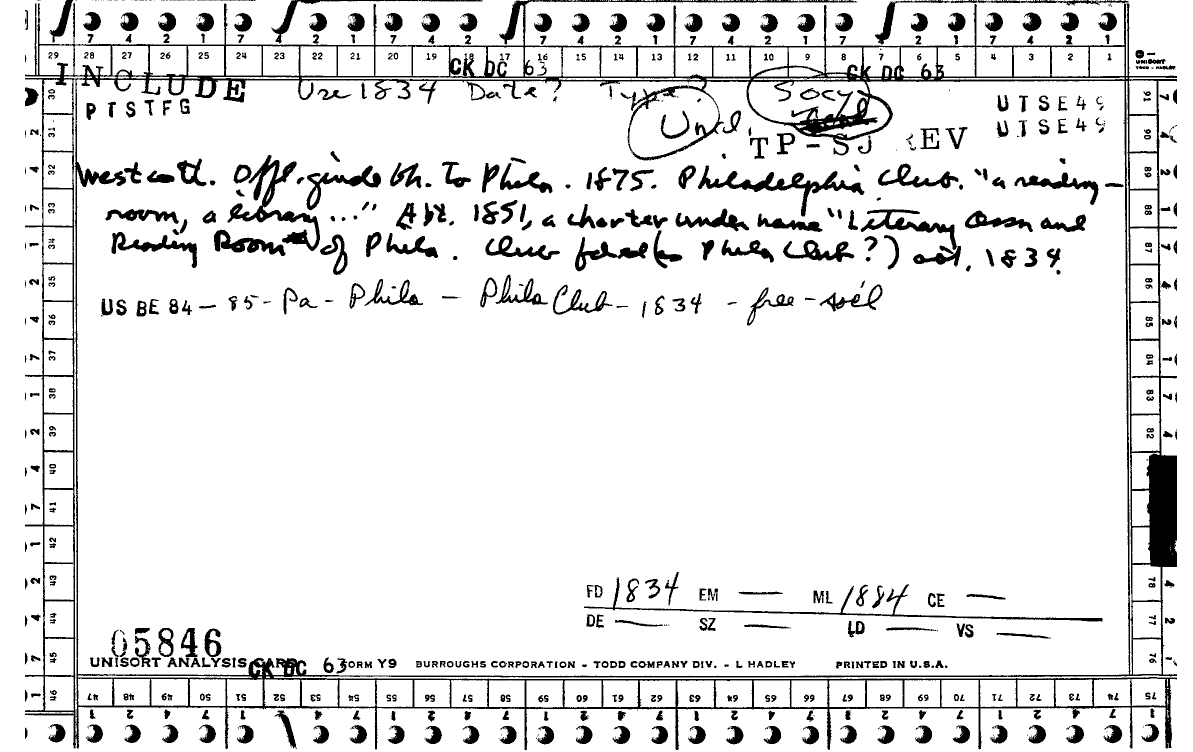 7 4 2 1 7 4 2 1 7 4 2 1 7 4 2 1 7 4 2 1 7 4 2 1 7 4 2 1
29 28 27 26 25 24 23 22 21 20 19 18 17 16 15 14 13 12 11 10 9 8 7 6 5 4 3 2 1
CK DC 63 CK DC 63
UNISORT
INCLUDE Use 1834 Date? Type? Socy
PTSTFG Uncl. UTSE49
UTSE49
TP-SJ REV
Westcott. Offl. guide bk. to Phila. 1875. Philadelphia Club. "a reading-
room, a library..." Abt. 1851, a charter under name "Literary Assn and
Reading Room of Phila. Club formed (as Phila Club?) abt. 1834.
US BE 84-85-Pa-Phila-Phila Club-1834-free-socl
FD 1834 EM — ML 1884 CE —
DE — SZ — LD — VS —
05846
UNISORT ANALYSIS CARD CK DC 63 FORM Y9 BURROUGHS CORPORATION - TODD COMPANY DIV. - L HADLEY PRINTED IN U.S.A.
47 48 49 50 51 52 53 54 55 56 57 58 59 60 61 62 63 64 65 66 67 68 69 70 71 72 73 74 75